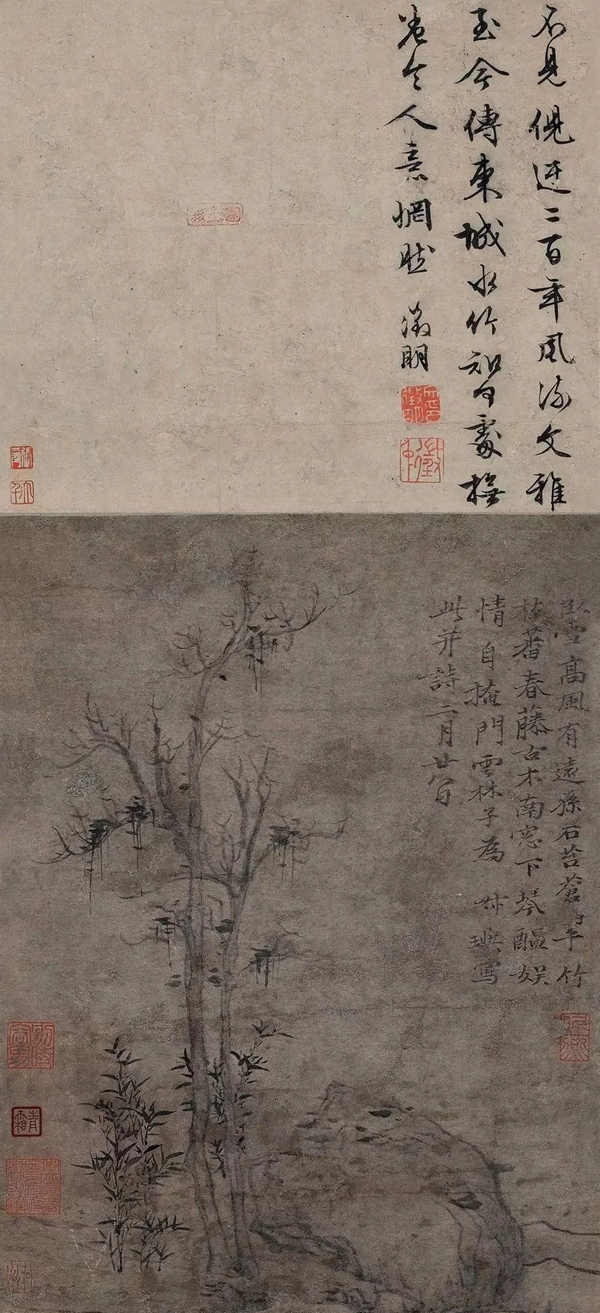 不見倪迂二百年風流文雅
至今傳東城水竹知何處撫
卷令人意惘然 徵明
高風有遠孫石苔蒼翠竹
枝蕃春藤古木南窓下琴醖娛
情自掩門雲林子為 叔璵寫
此并詩二月廿八日